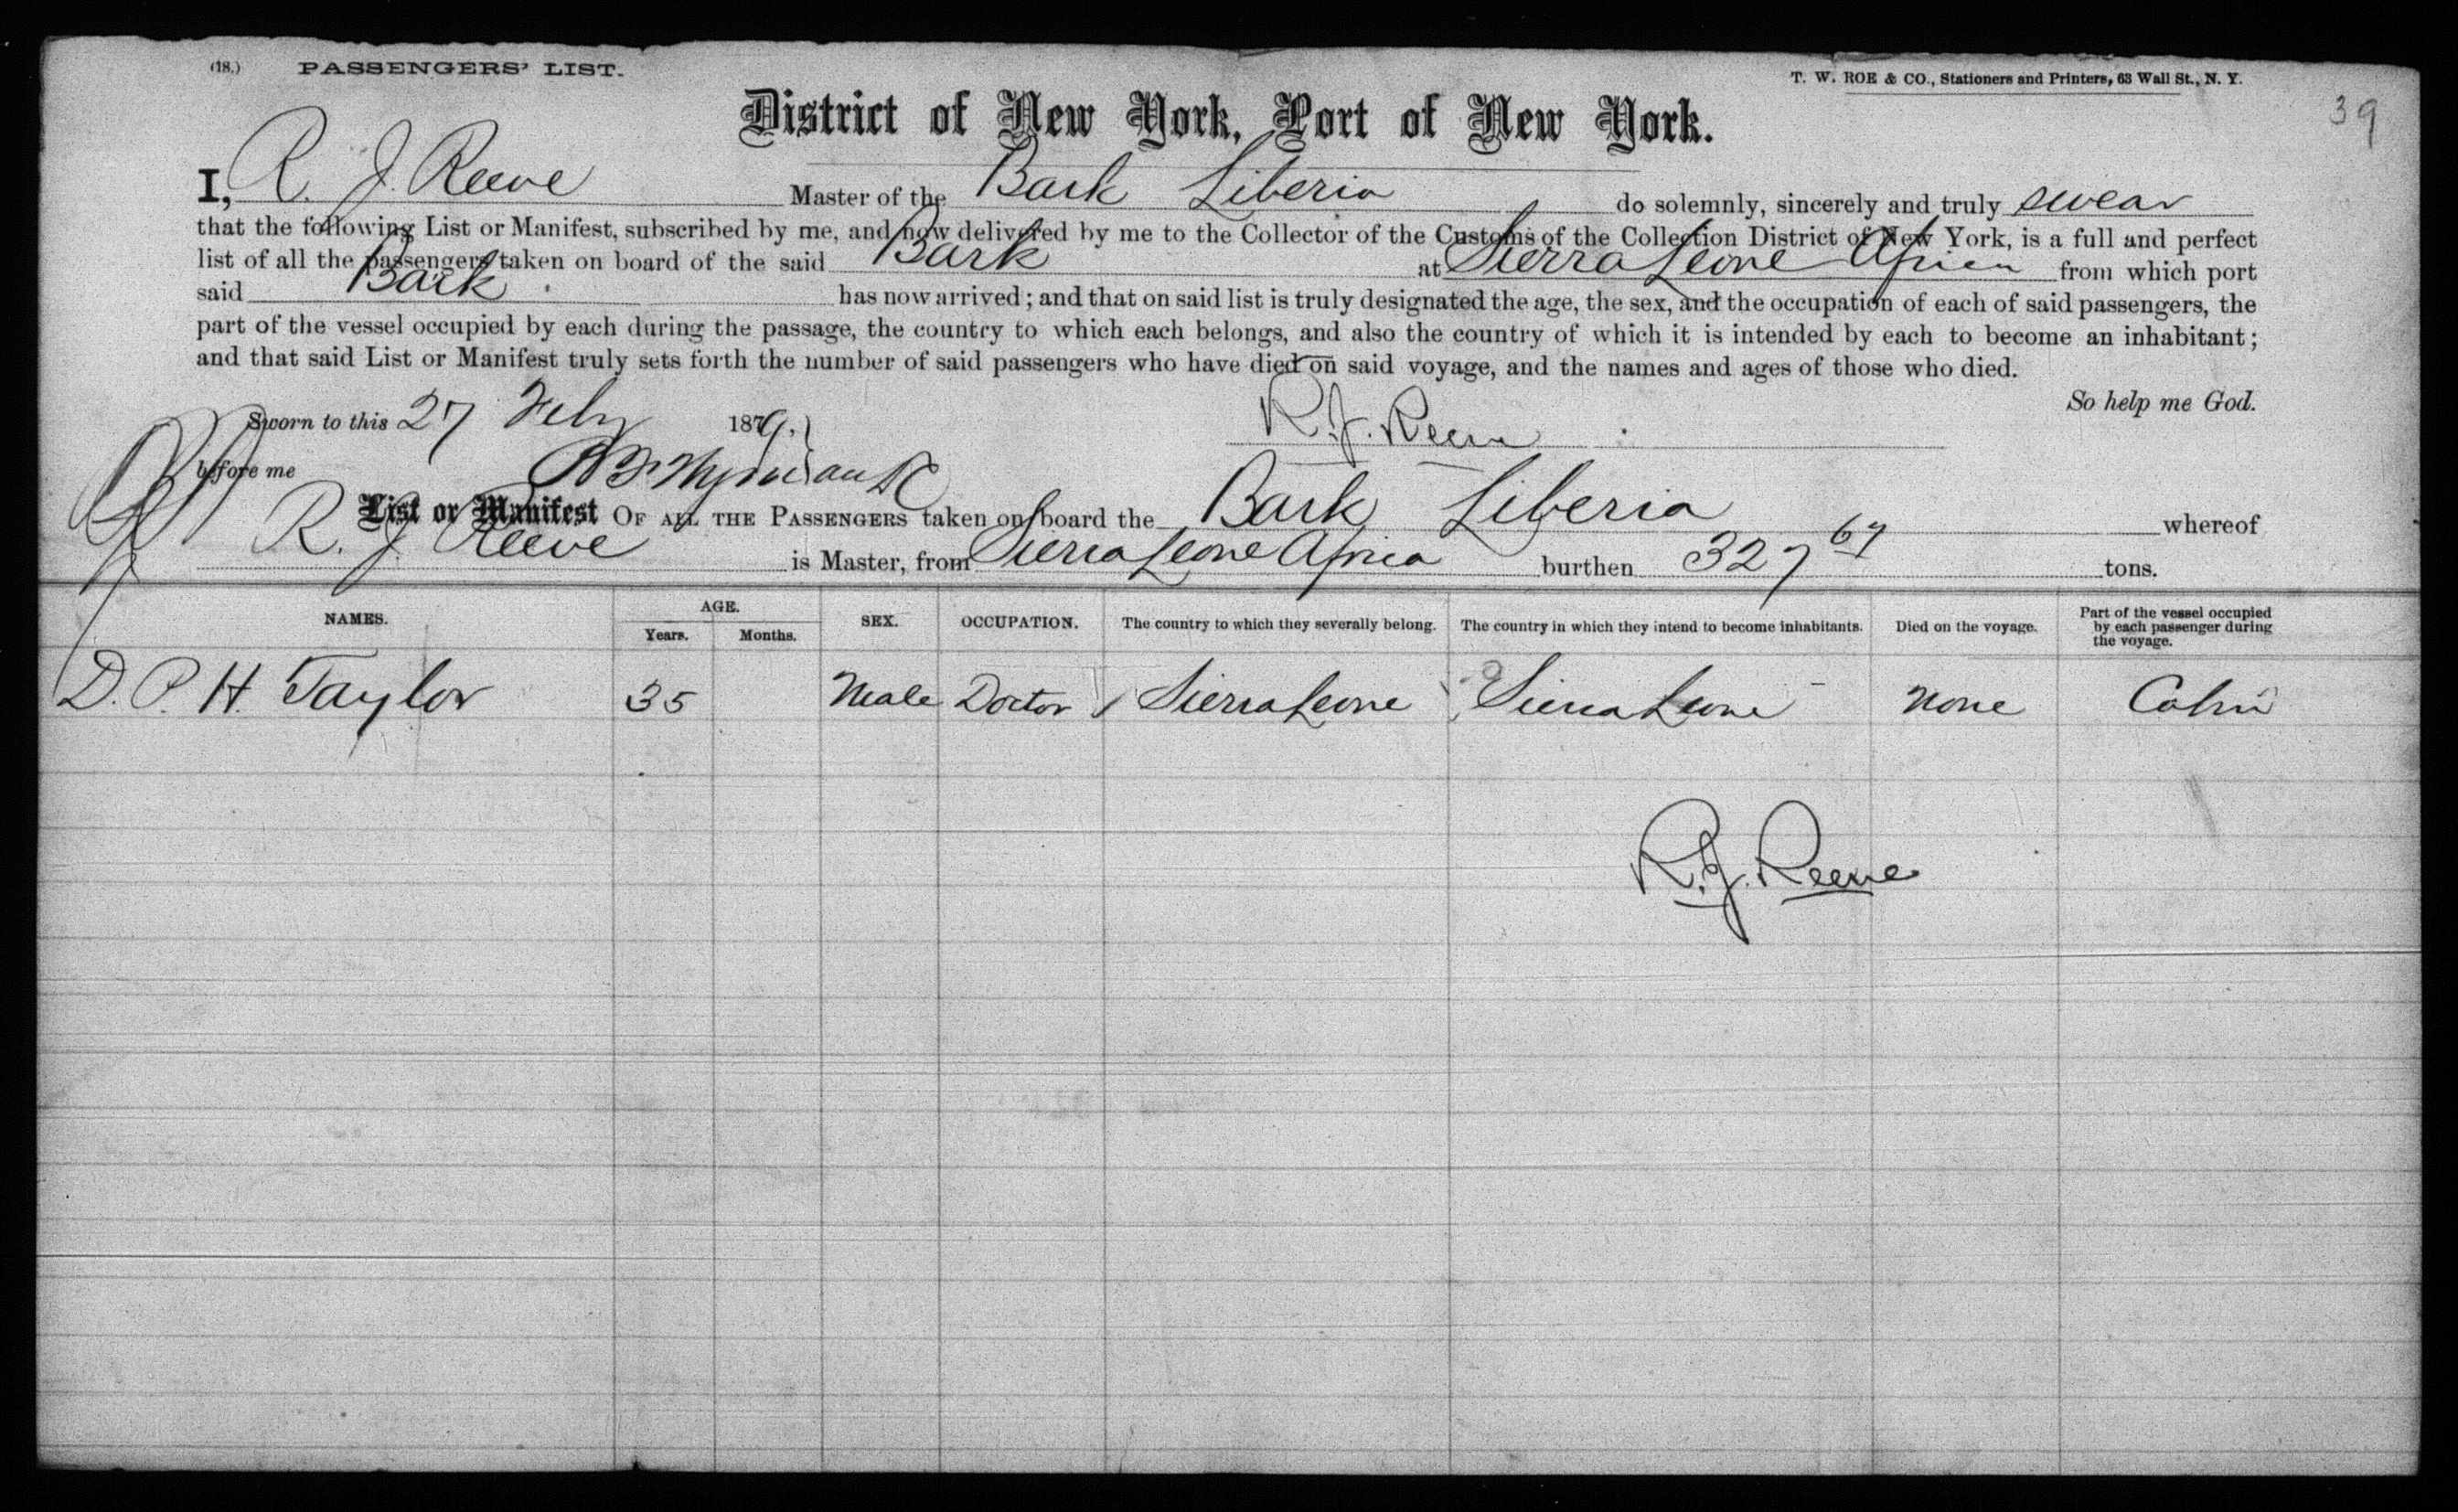 (18.) PASSENGERS' LIST.
T. W. ROE & CO., Stationers and Printers, 63 Wall St., N. Y.
39
District of New York, Port of New York.
I, R. J. Reeve Master of the Bark Liberia do solemnly, sincerely and truly swear
that the following List or Manifest, subscribed by me, and now delivered by me to the Collector of the Customs of the Collection District of New York, is a full and perfect
list of all the passengers taken on board of the said Bark at Sierra Leone Africa from which port
said Bark has now arrived; and that on said list is truly designated the age, the sex, and the occupation of each of said passengers, the
part of the vessel occupied by each during the passage, the country to which each belongs, and also the country of which it is intended by each to become an inhabitant;
and that said List or Manifest truly sets forth the number of said passengers who have died on said voyage, and the names and ages of those who died.
So help me God.
Sworn to this 27 Feby 1879.
R. J. Reeve
before me
List or Manifest OF ALL THE PASSENGERS taken on board the Bark Liberia whereof
R. J. Reeve is Master, from Sierra Leone Africa burthen 327 67 tons.
NAMES. AGE. Years. Months. SEX. OCCUPATION. The country to which they severally belong. The country in which they intend to become inhabitants. Died on the voyage. Part of the vessel occupied by each passenger during the voyage.
D. P. H. Taylor 35 Male Doctor Sierra Leone Sierra Leone None Cabin
R. J. Reeve